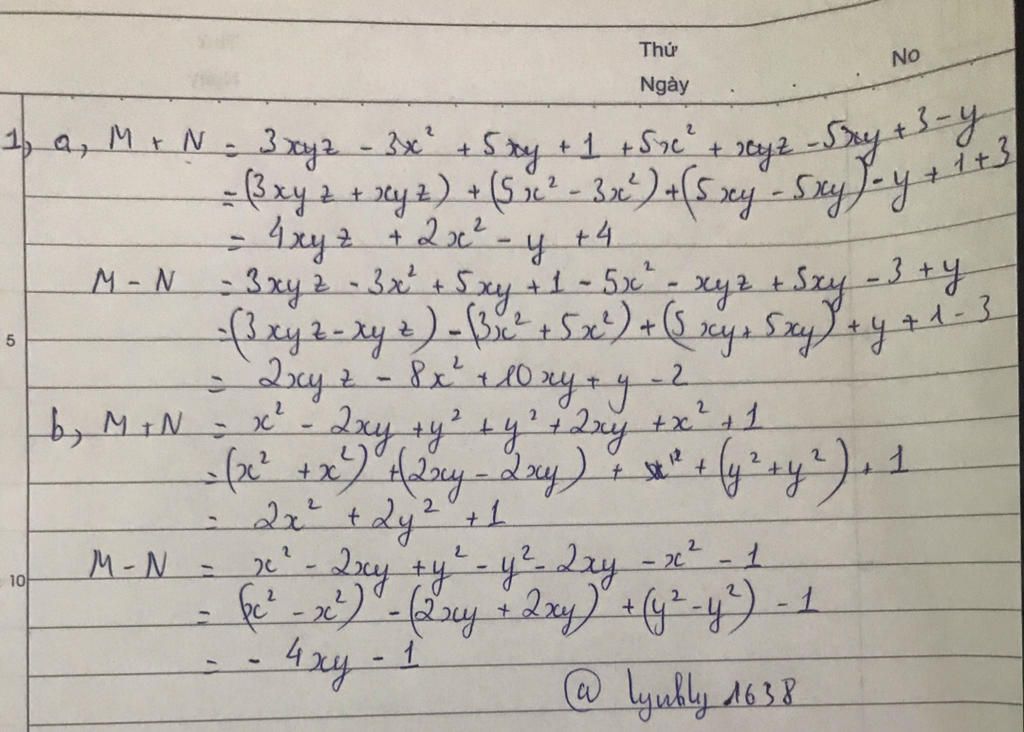 Thứ
Ngày
No
1, a, M + N = 3xyz - 3x² + 5xy + 1 + 5x² + xyz - 5xy + 3 - y
= (3xyz + xyz) + (5x² - 3x²) + (5xy - 5xy) - y + 1 + 3
= 4xyz + 2x² - y + 4
M - N = 3xyz - 3x² + 5xy + 1 - 5x² - xyz + 5xy - 3 + y
5
= (3xyz - xyz) - (3x² + 5x²) + (5xy + 5xy) + y + 1 - 3
= 2xyz - 8x² + 10xy + y - 2
b, M + N = x² - 2xy + y² + y² + 2xy + x² + 1
= (x² + x²) + (2xy - 2xy) + (y² + y²) + 1
= 2x² + 2y² + 1
10
M - N = x² - 2xy + y² - y² - 2xy - x² - 1
= (x² - x²) - (2xy + 2xy) + (y² - y²) - 1
= - 4xy - 1
@ lyubly 1638